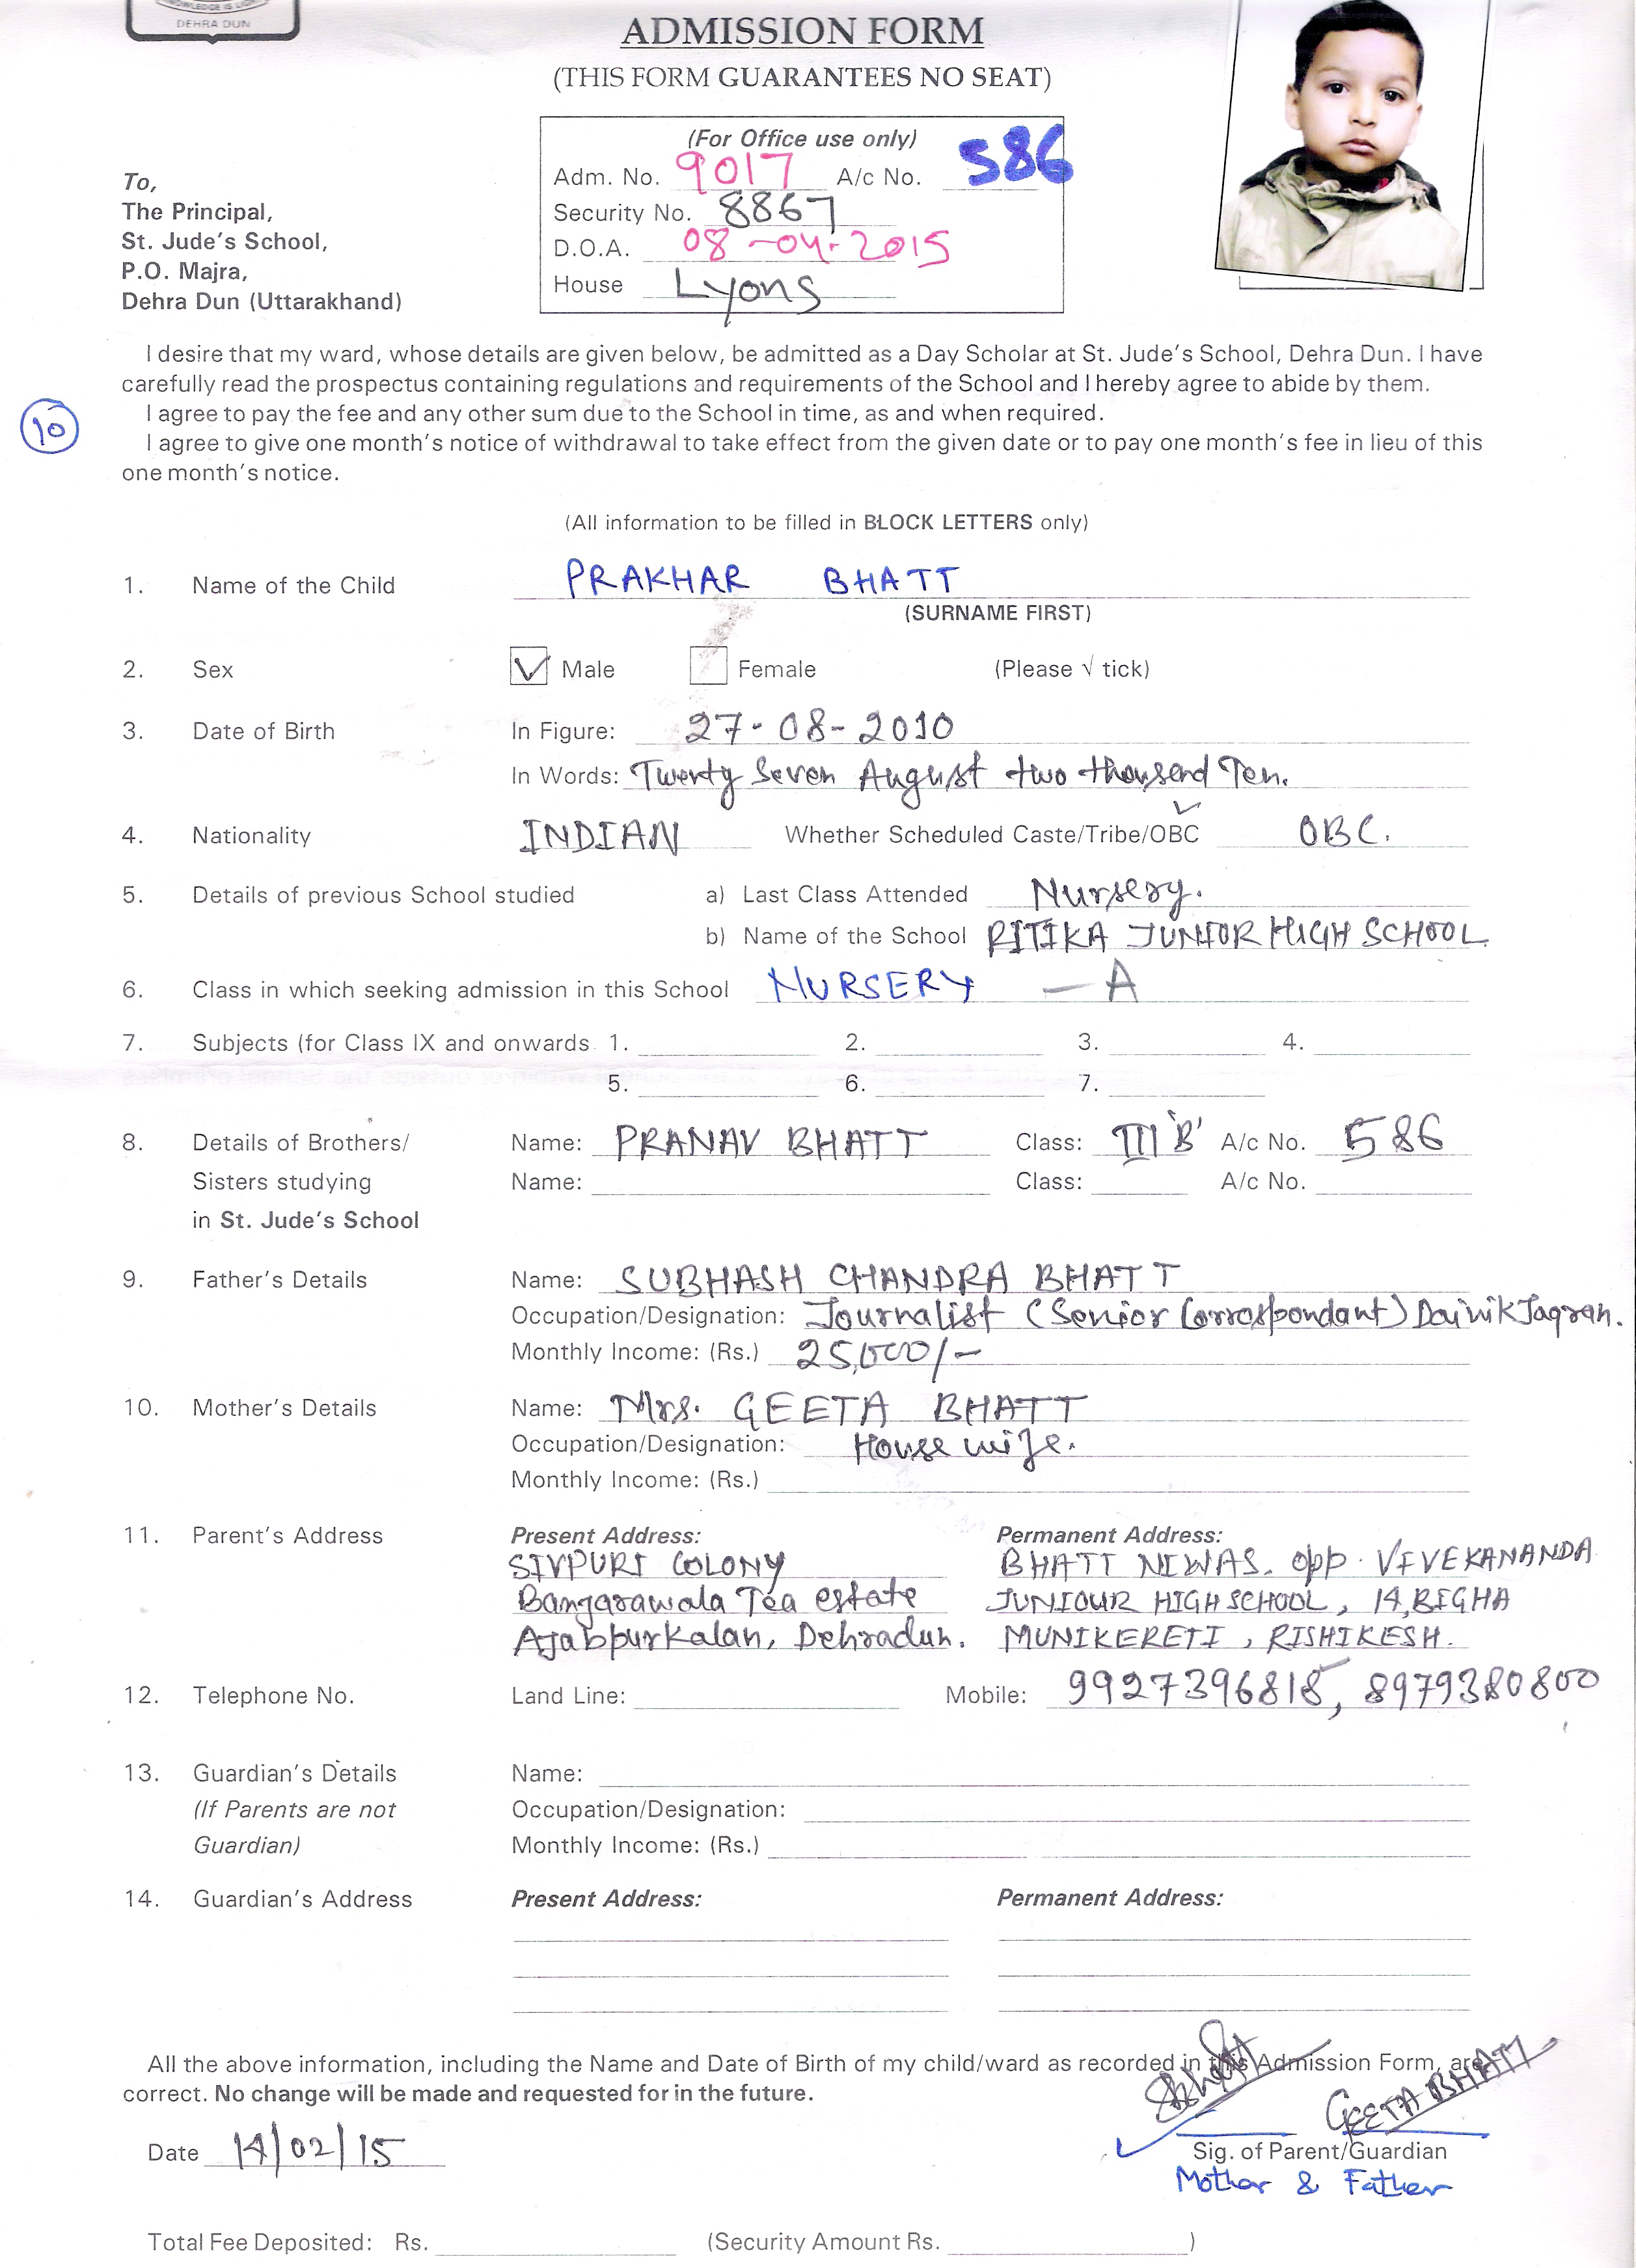 KNOWLEDGE IS LIGHT
DEHRA DUN
ADMISSION FORM
(THIS FORM GUARANTEES NO SEAT)
(For Office use only)
Adm. No. 9017 A/c No. 586
Security No. 8867
D.O.A. 08-04-2015
House Lyons
To,
The Principal,
St. Jude's School,
P.O. Majra,
Dehra Dun (Uttarakhand)
I desire that my ward, whose details are given below, be admitted as a Day Scholar at St. Jude's School, Dehra Dun. I have
carefully read the prospectus containing regulations and requirements of the School and I hereby agree to abide by them.
10
I agree to pay the fee and any other sum due to the School in time, as and when required.
I agree to give one month's notice of withdrawal to take effect from the given date or to pay one month's fee in lieu of this
one month's notice.
(All information to be filled in BLOCK LETTERS only)
1. Name of the Child PRAKHAR BHATT
(SURNAME FIRST)
2. Sex Male Female (Please √ tick)
3. Date of Birth In Figure: 27-08-2010
In Words: Twenty Seven August two thousand Ten.
4. Nationality INDIAN Whether Scheduled Caste/Tribe/OBC OBC.
5. Details of previous School studied a) Last Class Attended Nursery.
b) Name of the School RITIKA JUNIOR HIGH SCHOOL
6. Class in which seeking admission in this School NURSERY — A
7. Subjects (for Class IX and onwards 1. 2. 3. 4.
5. 6. 7.
8. Details of Brothers/ Name: PRANAV BHATT Class: III 'B' A/c No. 586
Sisters studying Name: Class: A/c No.
in St. Jude's School
9. Father's Details Name: SUBHASH CHANDRA BHATT
Occupation/Designation: Journalist (Senior Correspondant) Dainik Jagran.
Monthly Income: (Rs.) 25,000/-
10. Mother's Details Name: Mrs. GEETA BHATT
Occupation/Designation: House wife.
Monthly Income: (Rs.)
11. Parent's Address Present Address: Permanent Address:
SIVPURI COLONY BHATT NIWAS. opp. VIVEKANANDA
Bangarawala Tea estate JUNIOUR HIGH SCHOOL, 14, BIGHA
Ajabpurkalan, Dehradun. MUNIKERETI, RISHIKESH.
12. Telephone No. Land Line: Mobile: 9927396818, 8979380800
13. Guardian's Details Name:
(If Parents are not Occupation/Designation:
Guardian) Monthly Income: (Rs.)
14. Guardian's Address Present Address: Permanent Address:
All the above information, including the Name and Date of Birth of my child/ward as recorded in this Admission Form, are
correct. No change will be made and requested for in the future.
GEETA BHATT
Date 14/02/15 Sig. of Parent/Guardian
Mother & Father
Total Fee Deposited: Rs. (Security Amount Rs. )